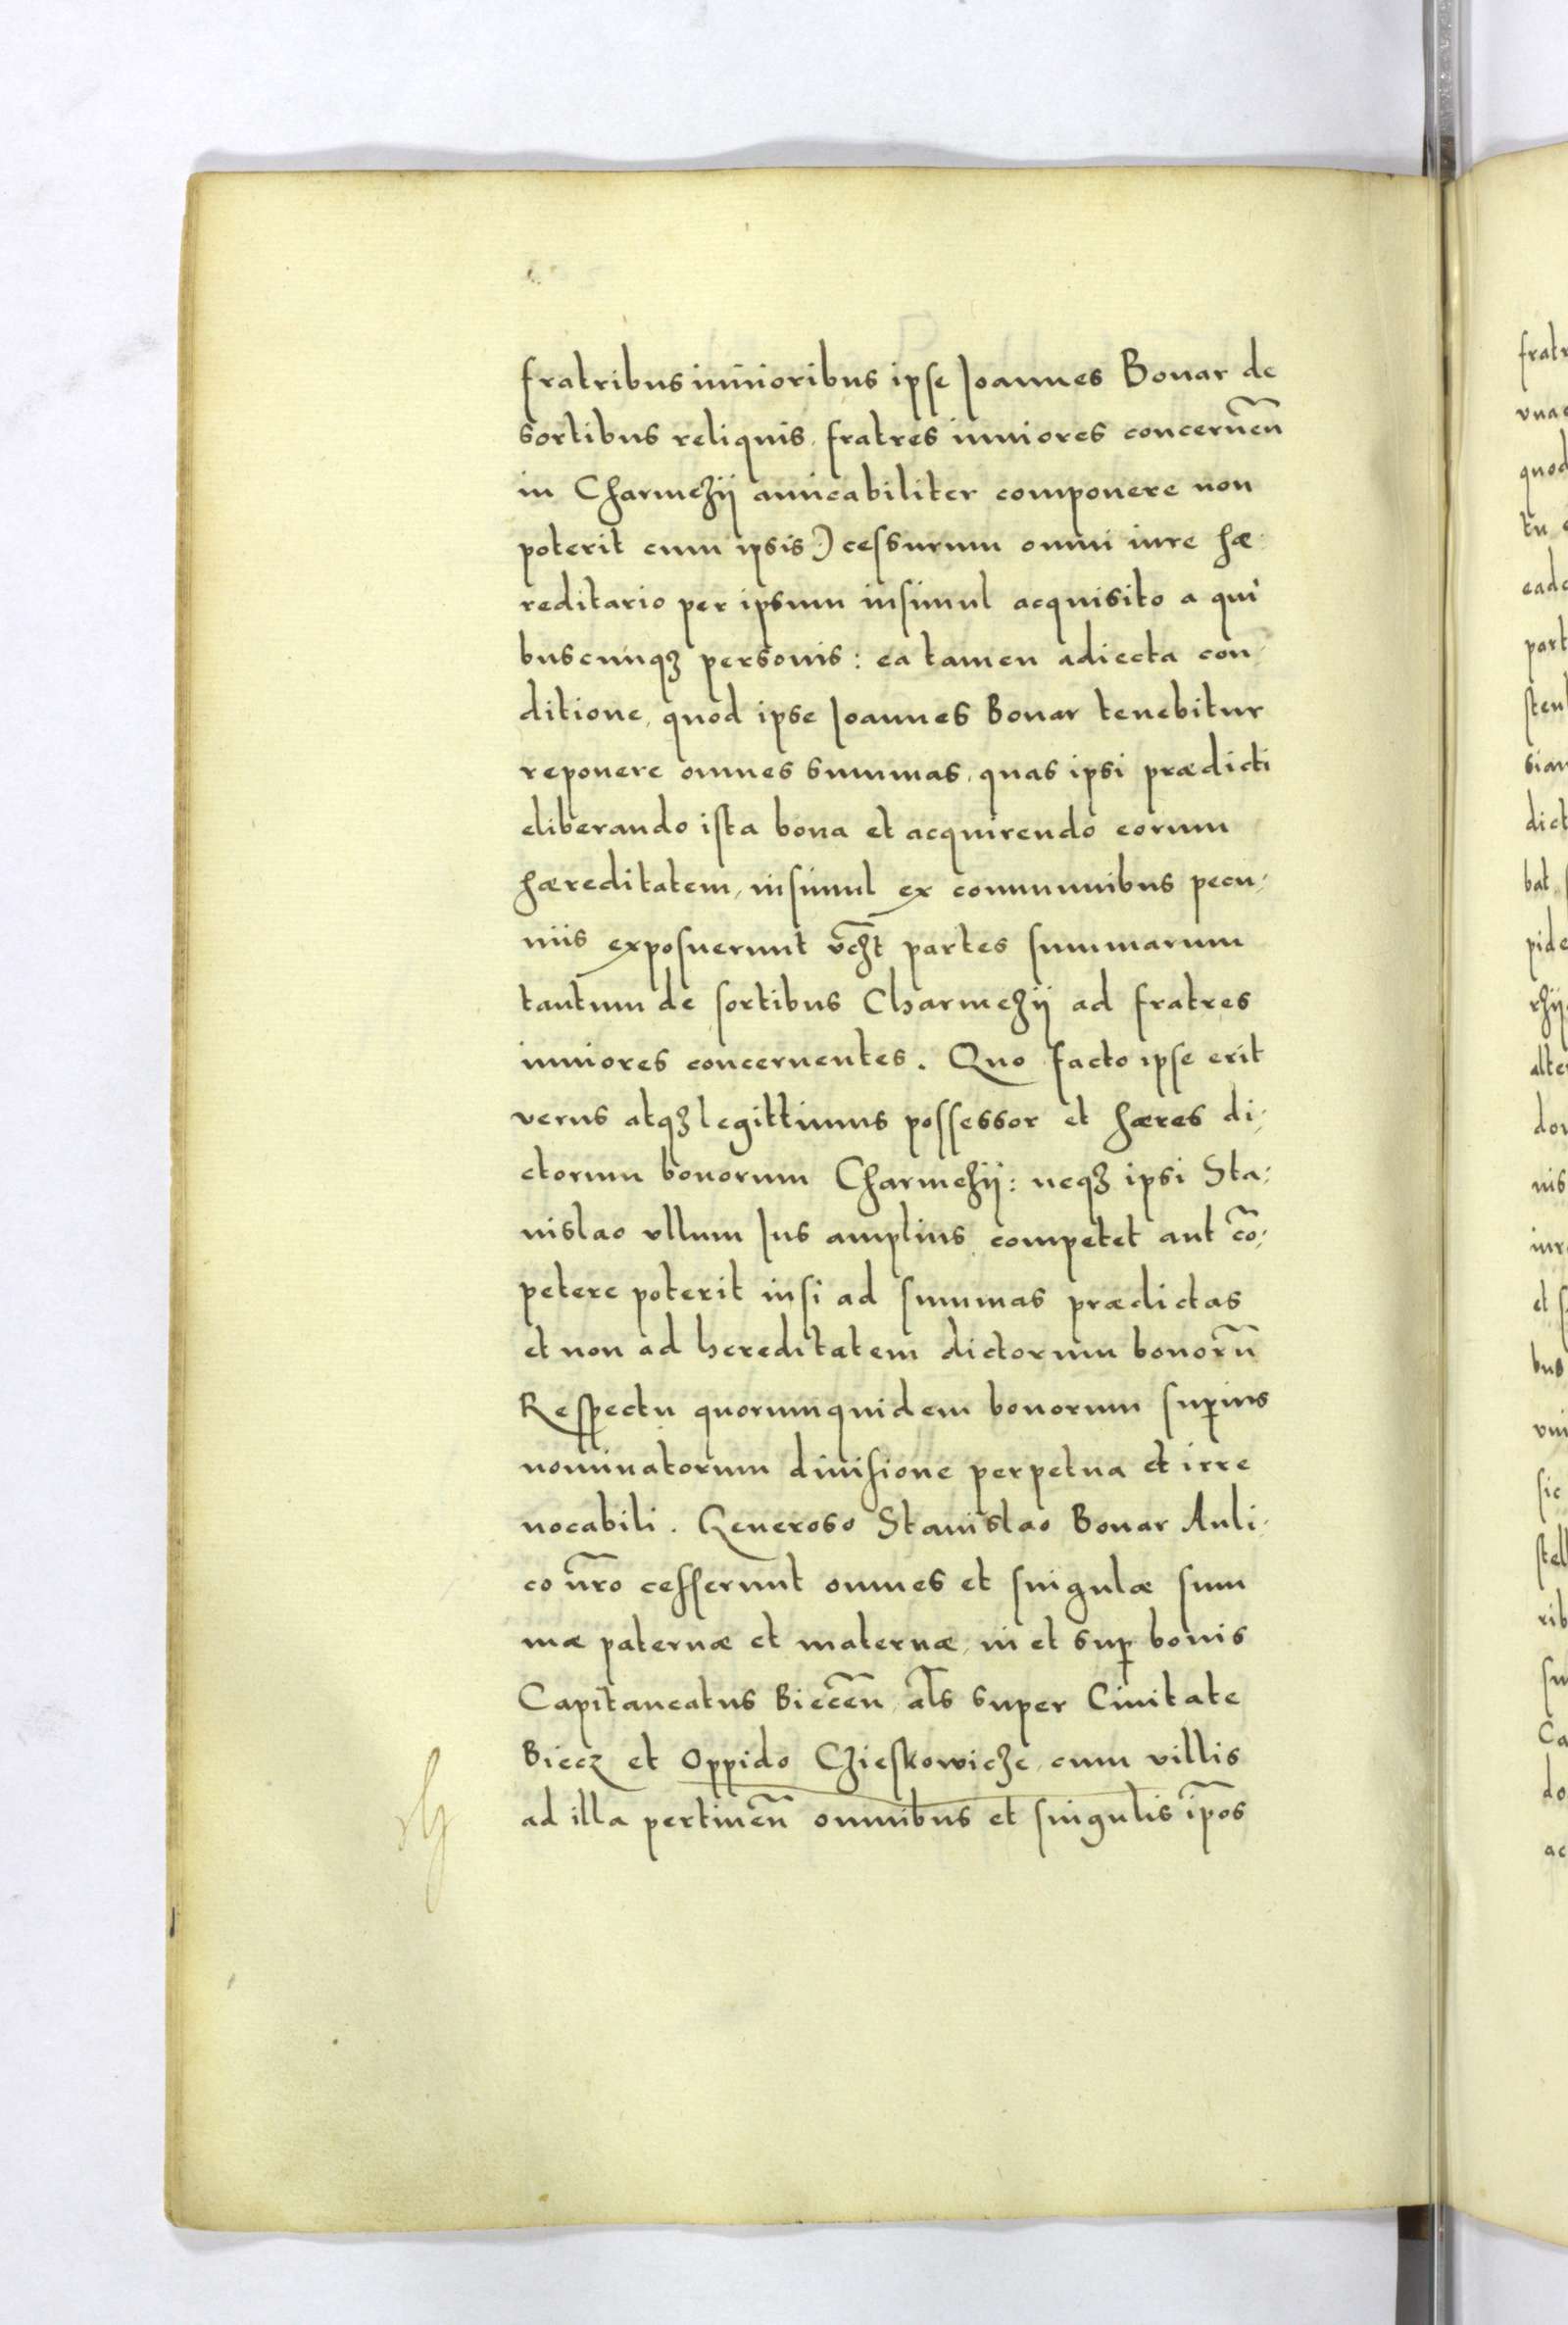 fratribus iunioribus ipse Ioannes Bonar de
sortibus reliquis, fratres iuniores concerneñ
in Charmezij amicabiliter componere non
poterit cum ipsis) cessurum omni iure hæ
reditario per ipsum insimul acquisito a qui
buscunqȝ personis: ea tamen adiecta con
ditione, quod ipse Ioannes Bonar tenebitur
reponere omnes summas, quas ipsi prædicti
eliberando ista bona et acquirendo eorum
hæreditatem, insimul ex communibus pecu
niis exposuerunt vcȝt partes summarum
tantum de sortibus Charmezij ad fratres
iuniores concernentes. Quo facto ipse erit
verus atqȝ legittimus possessor et hæres di
ctorum bonorum Charmezij: neqȝ ipsi Sta
nislao vllum Ius amplius competet aut cõ
petere poterit nisi ad summas prædictas
et non ad hereditatem dictorum bonorũ
Respectu quorumquidem bonorum suꝑius
nominatorum diuisione perpetua et irre
uocabili. Generoso Stanislao Bonar Auli
co nr̃o cesserunt omnes et singulæ sum
mæ paternæ et maternæ, in et suꝑ bonis
Capitaneatus Bieceñ, al̃s super Ciuitate
Biecz et Oppido Czieskowicze, cum villis
ad illa pertineñ omnibus et singulis ip̃os